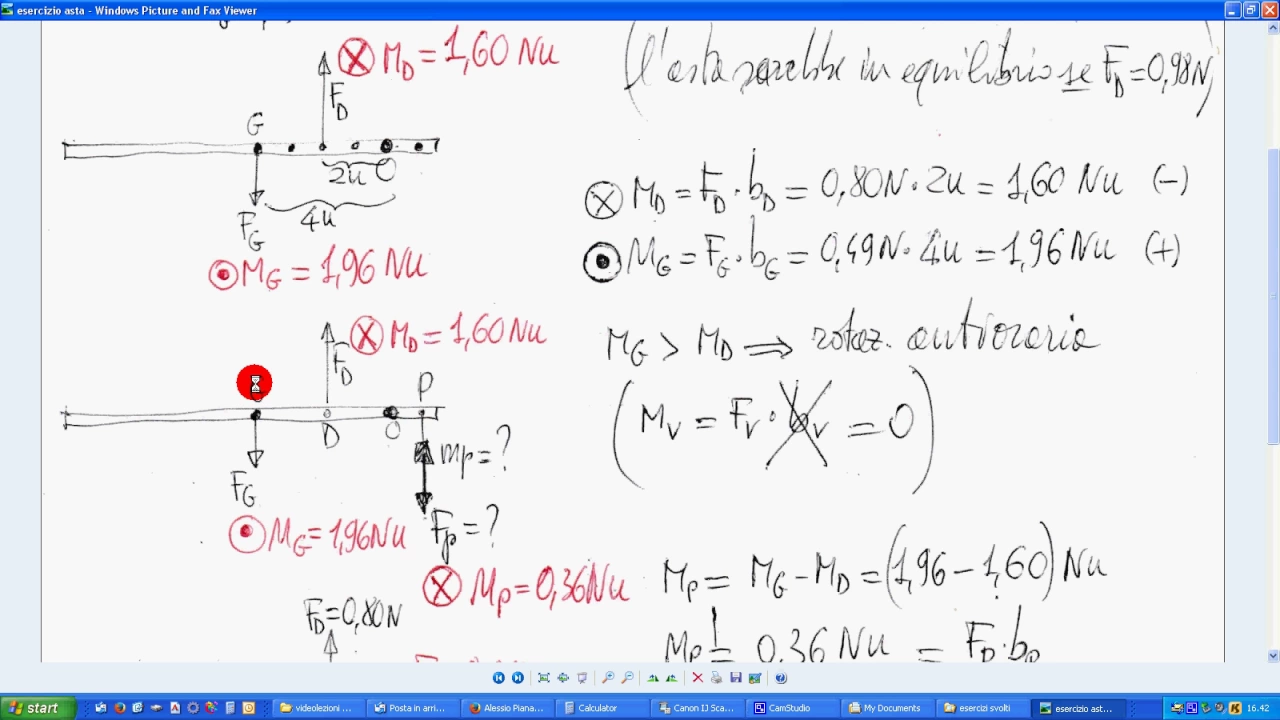 esercizio asta - Windows Picture and Fax Viewer
⊗ M_D = 1,60 Nu
(l'asta sarebbe in equilibrio se F_D = 0,98N)
F_D
G
2u O
F_G 4u
⊗ M_D = F_D · b_D = 0,80N · 2u = 1,60 Nu (-)
⊙ M_G = 1,96 Nu
⊙ M_G = F_G · b_G = 0,49N · 4u = 1,96 Nu (+)
⊗ M_D = 1,60 Nu
M_G > M_D ⟹ rotaz. antioraria
F_D P
D O
(M_V = F_V · b_V = 0)
m_P = ?
F_G
F_P = ?
⊙ M_G = 1,96 Nu
⊗ M_P = 0,36 Nu
M_P = M_G - M_D = (1,96 - 1,60) Nu
F_D = 0,80N
M_P = 0,36 Nu = F_D · b_P
start
videolezioni ...
Posta in arri...
Alessio Piana...
Calculator
Canon IJ Sca...
CamStudio
My Documents
esercizi svolti
esercizio ast...
16.42